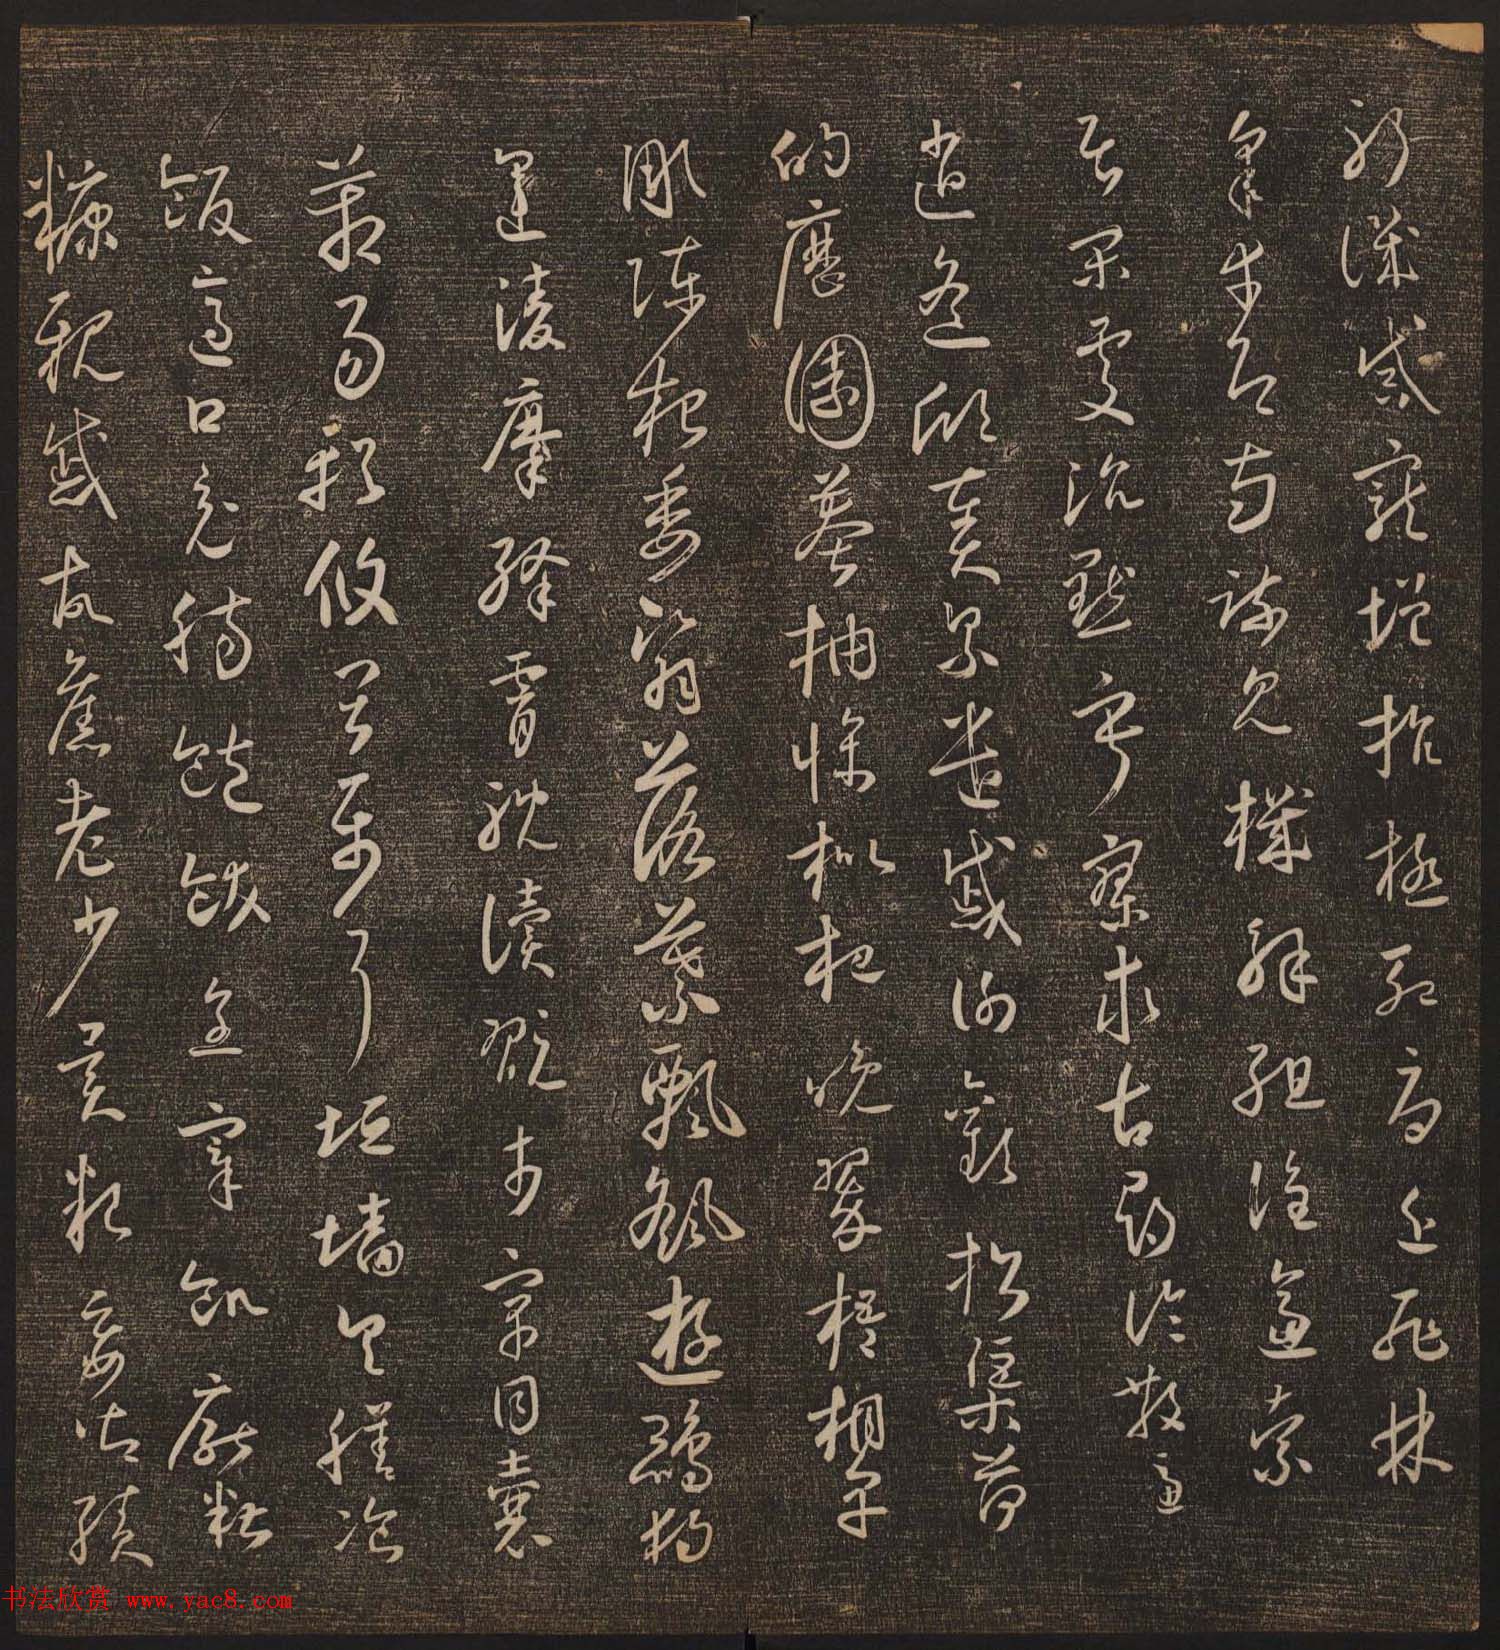 躬譏誡寵增抗極殆辱近恥林
皋幸即兩疏見機解組誰逼索
居閑處沉默寂寥求古尋論散慮
逍遙欣奏累遣慼謝歡招渠荷
的歷園莽抽條枇杷晚翠梧桐早
凋陳根委翳落葉飄颻遊鵾獨
運凌摩絳霄耽讀翫市寓目囊
箱易輶攸畏屬耳垣墻具膳飡
飯適口充腸飽飫烹宰飢厭糟
糠親戚故舊老少異粮妾御績
书法欣赏 www.yac8.com